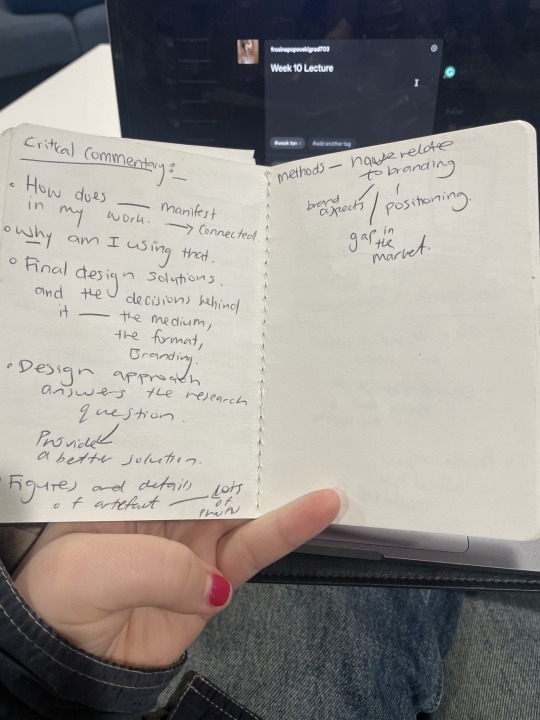 frosinapopovskigrad703
Week 10 Lecture
#week ten
#add another tag
Critical Commentary:-
• How does — manifest
in my work. → Connected.
• Why am I using that.
• Final design solutions.
and the decisions behind
it — the medium,
the format,
Branding.
• Design approach
answers the research
question.
Provide
a better solution.
• Figures and details
of artefact — Lots
of
methods — relate
to branding
brand aspects / positioning.
gap in
the
market.